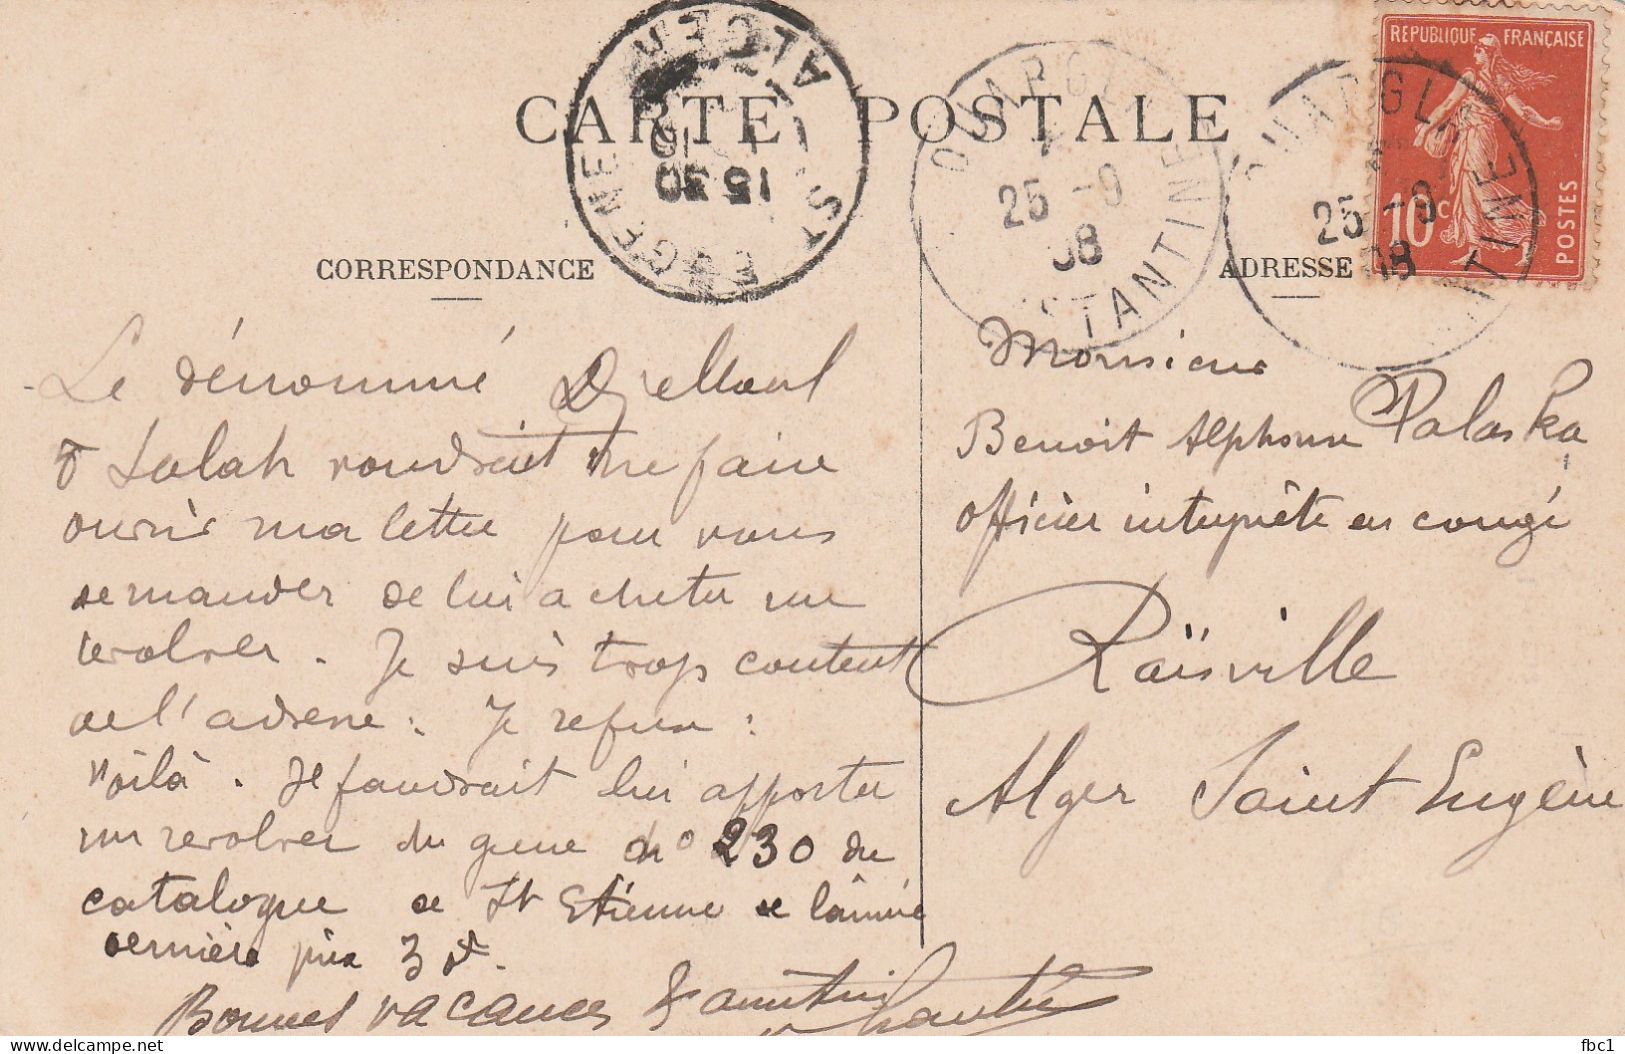 CARTE POSTALE
CORRESPONDANCE
ADRESSE
REPUBLIQUE FRANÇAISE
10c
POSTES
ST EUGENE
ALGER
15 30
OUARGLA
25 -9
08
CONSTANTINE
OUARGLA
25 -9
08
TINE
Le dénommé Djelloul
Salah voudrait me faire
ouvrir ma lettre pour vous
demander de lui acheter un
revolver. Je suis trop content
de l'adresse. Je refuse :
Voilà. Il faudrait lui apporter
un revolver du genre du n° 230 du
catalogue de St Etienne de l'année
dernière prix
Bonnes vacances
Monsieur
Benoit Alphonse Palaska
officier interprète en congé
Raïsville
Alger Saint Eugène
www.delcampe.net
fbc1